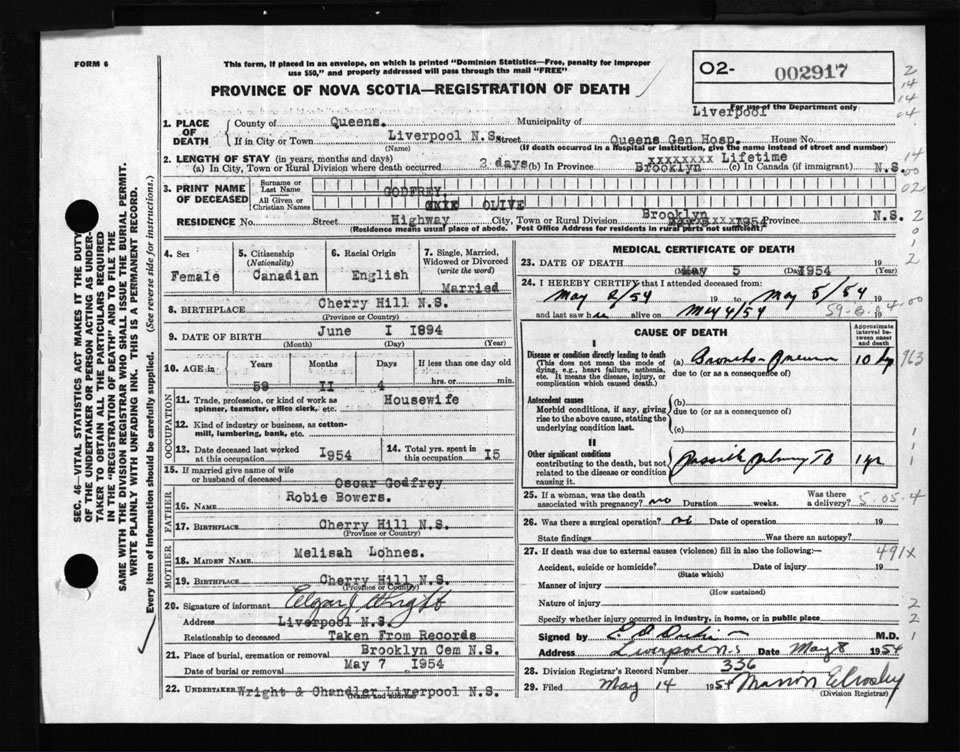 FORM 6
This form, if placed in an envelope, on which is printed "Dominion Statistics—Free, penalty for improper
use $50," and properly addressed will pass through the mail "FREE"
PROVINCE OF NOVA SCOTIA—REGISTRATION OF DEATH
O2- 002917
For use of the Department only
SEC. 46—VITAL STATISTICS ACT MAKES IT THE DUTY
OF THE UNDERTAKER OR PERSON ACTING AS UNDER-
TAKER TO OBTAIN ALL THE PARTICULARS REQUIRED
IN THE "REGISTRATION OF DEATH" AND TO FILE THE
SAME WITH THE DIVISION REGISTRAR WHO SHALL ISSUE THE BURIAL PERMIT.
WRITE PLAINLY WITH UNFADING INK. THIS IS A PERMANENT RECORD.
Every item of information should be carefully supplied. (See reverse side for instructions.)
1. PLACE OF DEATH
County of Queens. Municipality of Liverpool
If in City or Town Liverpool N.S. Street Queens Gen Hosp. House No.
(Name) (If death occurred in a Hospital or institution, give the name instead of street and number)
2. LENGTH OF STAY (in years, months and days) xxxxxxxx Lifetime
(a) In City, Town or Rural Division where death occurred 3 days (b) In Province Brooklyn (c) In Canada (if immigrant) N.S.
3. PRINT NAME OF DECEASED
Surname or Last Name GODFREY,
All Given or Christian Names OLIVE
RESIDENCE No. Street Highway City, Town or Rural Division Brooklyn 1954 Province N.S.
(Residence means usual place of abode. Post Office Address for residents in rural parts not sufficient)
4. Sex Female
5. Citizenship (Nationality) Canadian
6. Racial Origin English
7. Single, Married, Widowed or Divorced (write the word) Married
8. BIRTHPLACE Cherry Hill N.S.
(Province or Country)
9. DATE OF BIRTH June I I894
(Month) (Day) (Year)
10. AGE in Years Months Days If less than one day old
59 II 4 hrs. or min.
OCCUPATION
11. Trade, profession, or kind of work as spinner, teamster, office clerk, etc. Housewife
12. Kind of industry or business, as cotton-mill, lumbering, bank, etc.
13. Date deceased last worked at this occupation I954
14. Total yrs. spent in this occupation I5
15. If married give name of wife or husband of deceased Oscar Godfrey
FATHER
16. NAME Robie Bowers.
17. BIRTHPLACE Cherry Hill N.S.
(Province or Country)
MOTHER
18. MAIDEN NAME Melisah Lohnes.
19. BIRTHPLACE Cherry Hill N.S.
(Province or Country)
20. Signature of informant Wright
Address Liverpool N.S.
Relationship to deceased Taken From Records
21. Place of burial, cremation or removal Brooklyn Cem N.S.
Date of burial or removal May 7 I954
22. UNDERTAKER Wright & Chandler Liverpool N.S.
(Name and address)
MEDICAL CERTIFICATE OF DEATH
23. DATE OF DEATH May 5 I954
(Month) (Day) (Year)
24. I HEREBY CERTIFY that I attended deceased from
May 2/54 19 to May 5/54 19
and last saw her alive on May 4/54 19
CAUSE OF DEATH
Approximate interval between onset and death
I
Disease or condition directly leading to death (a) Broncho-Pneum 10 dy
(This does not mean the mode of dying, e.g., heart failure, asthenia, etc. It means the disease, injury, or complication which caused death.)
due to (or as a consequence of)
Antecedent causes
Morbid conditions, if any, giving rise to the above cause, stating the underlying condition last.
(b)
due to (or as a consequence of)
(c)
II
Other significant conditions
contributing to the death, but not related to the disease or condition causing it. Possible Pulmonary TB 1 yr
25. If a woman, was the death associated with pregnancy? no Duration weeks. Was there a delivery?
5-05-4
26. Was there a surgical operation? no Date of operation 19
State findings Was there an autopsy?
27. If death was due to external causes (violence) fill in also the following:—
491x
Accident, suicide or homicide? Date of injury 19
(State which)
Manner of injury
(How sustained)
Nature of injury
Specify whether injury occurred in industry, in home, or in public place
Signed by M.D.
Address Liverpool N.S Date May 8 1954
28. Division Registrar's Record Number 336
29. Filed May 14 1954 Marion E Crosby
(Division Registrar)